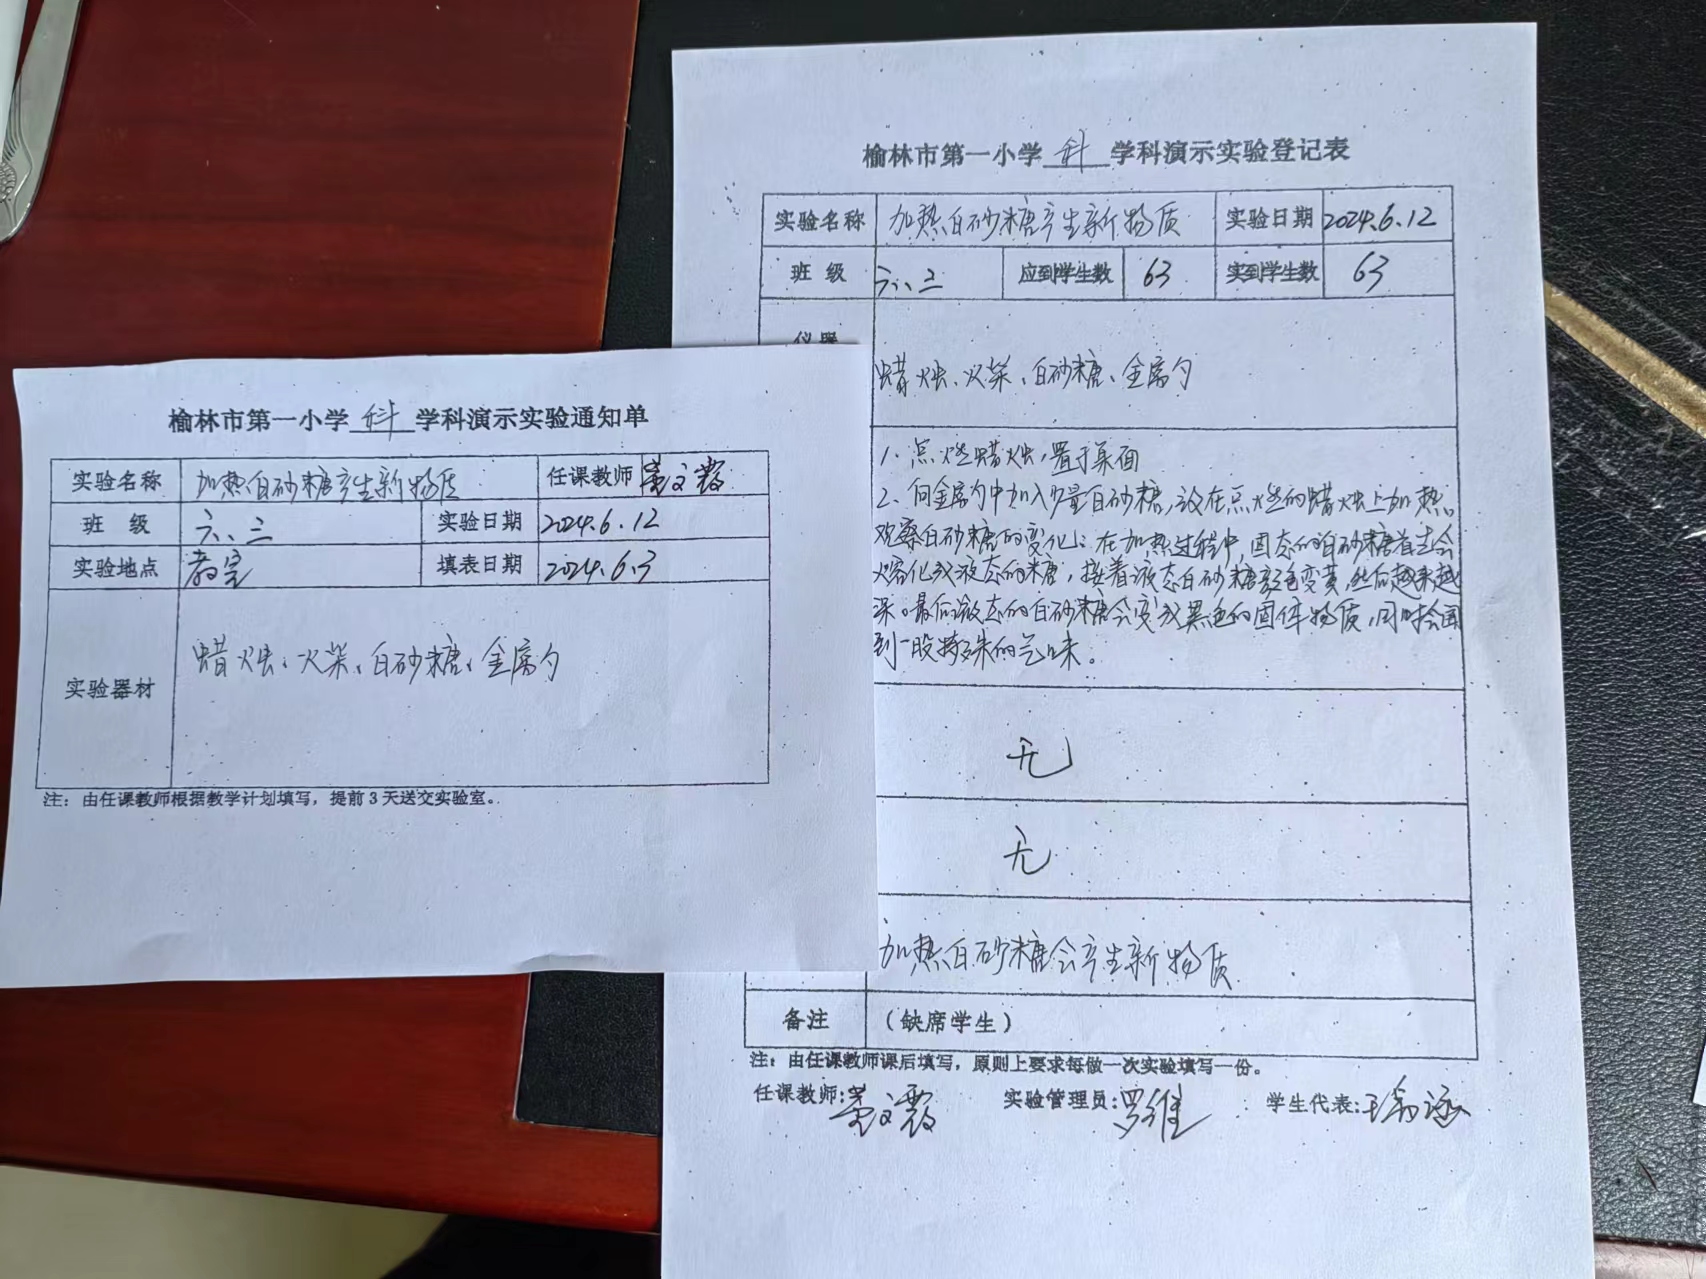 榆林市第一小学 科 学科演示实验通知单
实验名称 加热白砂糖产生新物质 任课教师
班 级 六、三 实验日期 2024.6.12
实验地点 教室 填表日期 2024.6.3
实验器材 蜡烛、火柴、白砂糖、金属勺
注：由任课教师根据教学计划填写，提前3天送交实验室。
榆林市第一小学 科 学科演示实验登记表
实验名称 加热白砂糖产生新物质 实验日期 2024.6.12
班 级 六、三 应到学生数 63 实到学生数 63
蜡烛、火柴、白砂糖、金属勺
1. 点燃蜡烛，置于桌面
2、向金属勺中加入少量白砂糖，放在点燃的蜡烛上加热。
观察白砂糖的变化：在加热过程中，固态的白砂糖首先会
熔化成液态的糖，接着液态白砂糖颜色变黄，然后越来越
深。最后液态的白砂糖会变成黑色的固体物质，同时会闻
到一股特殊的气味。
无
无
加热白砂糖会产生新物质
备注 （缺席学生）
注：由任课教师课后填写，原则上要求每做一次实验填写一份。
任课教师: 实验管理员:罗维 学生代表: